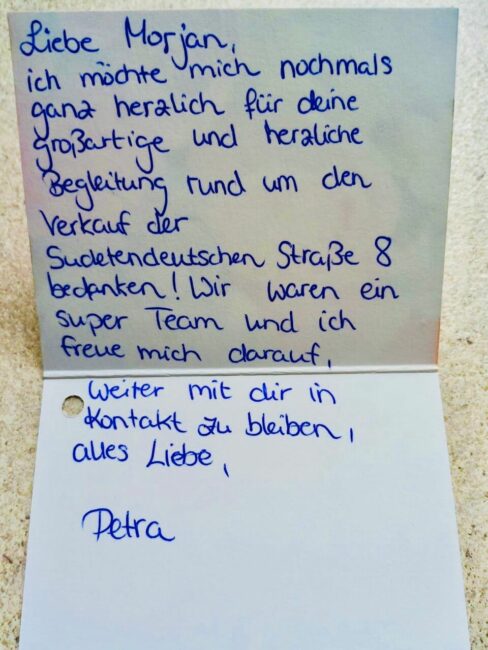 Liebe Morjan,
ich möchte mich nochmals
ganz herzlich für deine
großartige und herzliche
Begleitung rund um den
Verkauf der
Sudetendeutschen Straße 8
bedanken! Wir waren ein
super Team und ich
freue mich darauf,
weiter mit dir in
Kontakt zu bleiben,
alles Liebe,
Petra